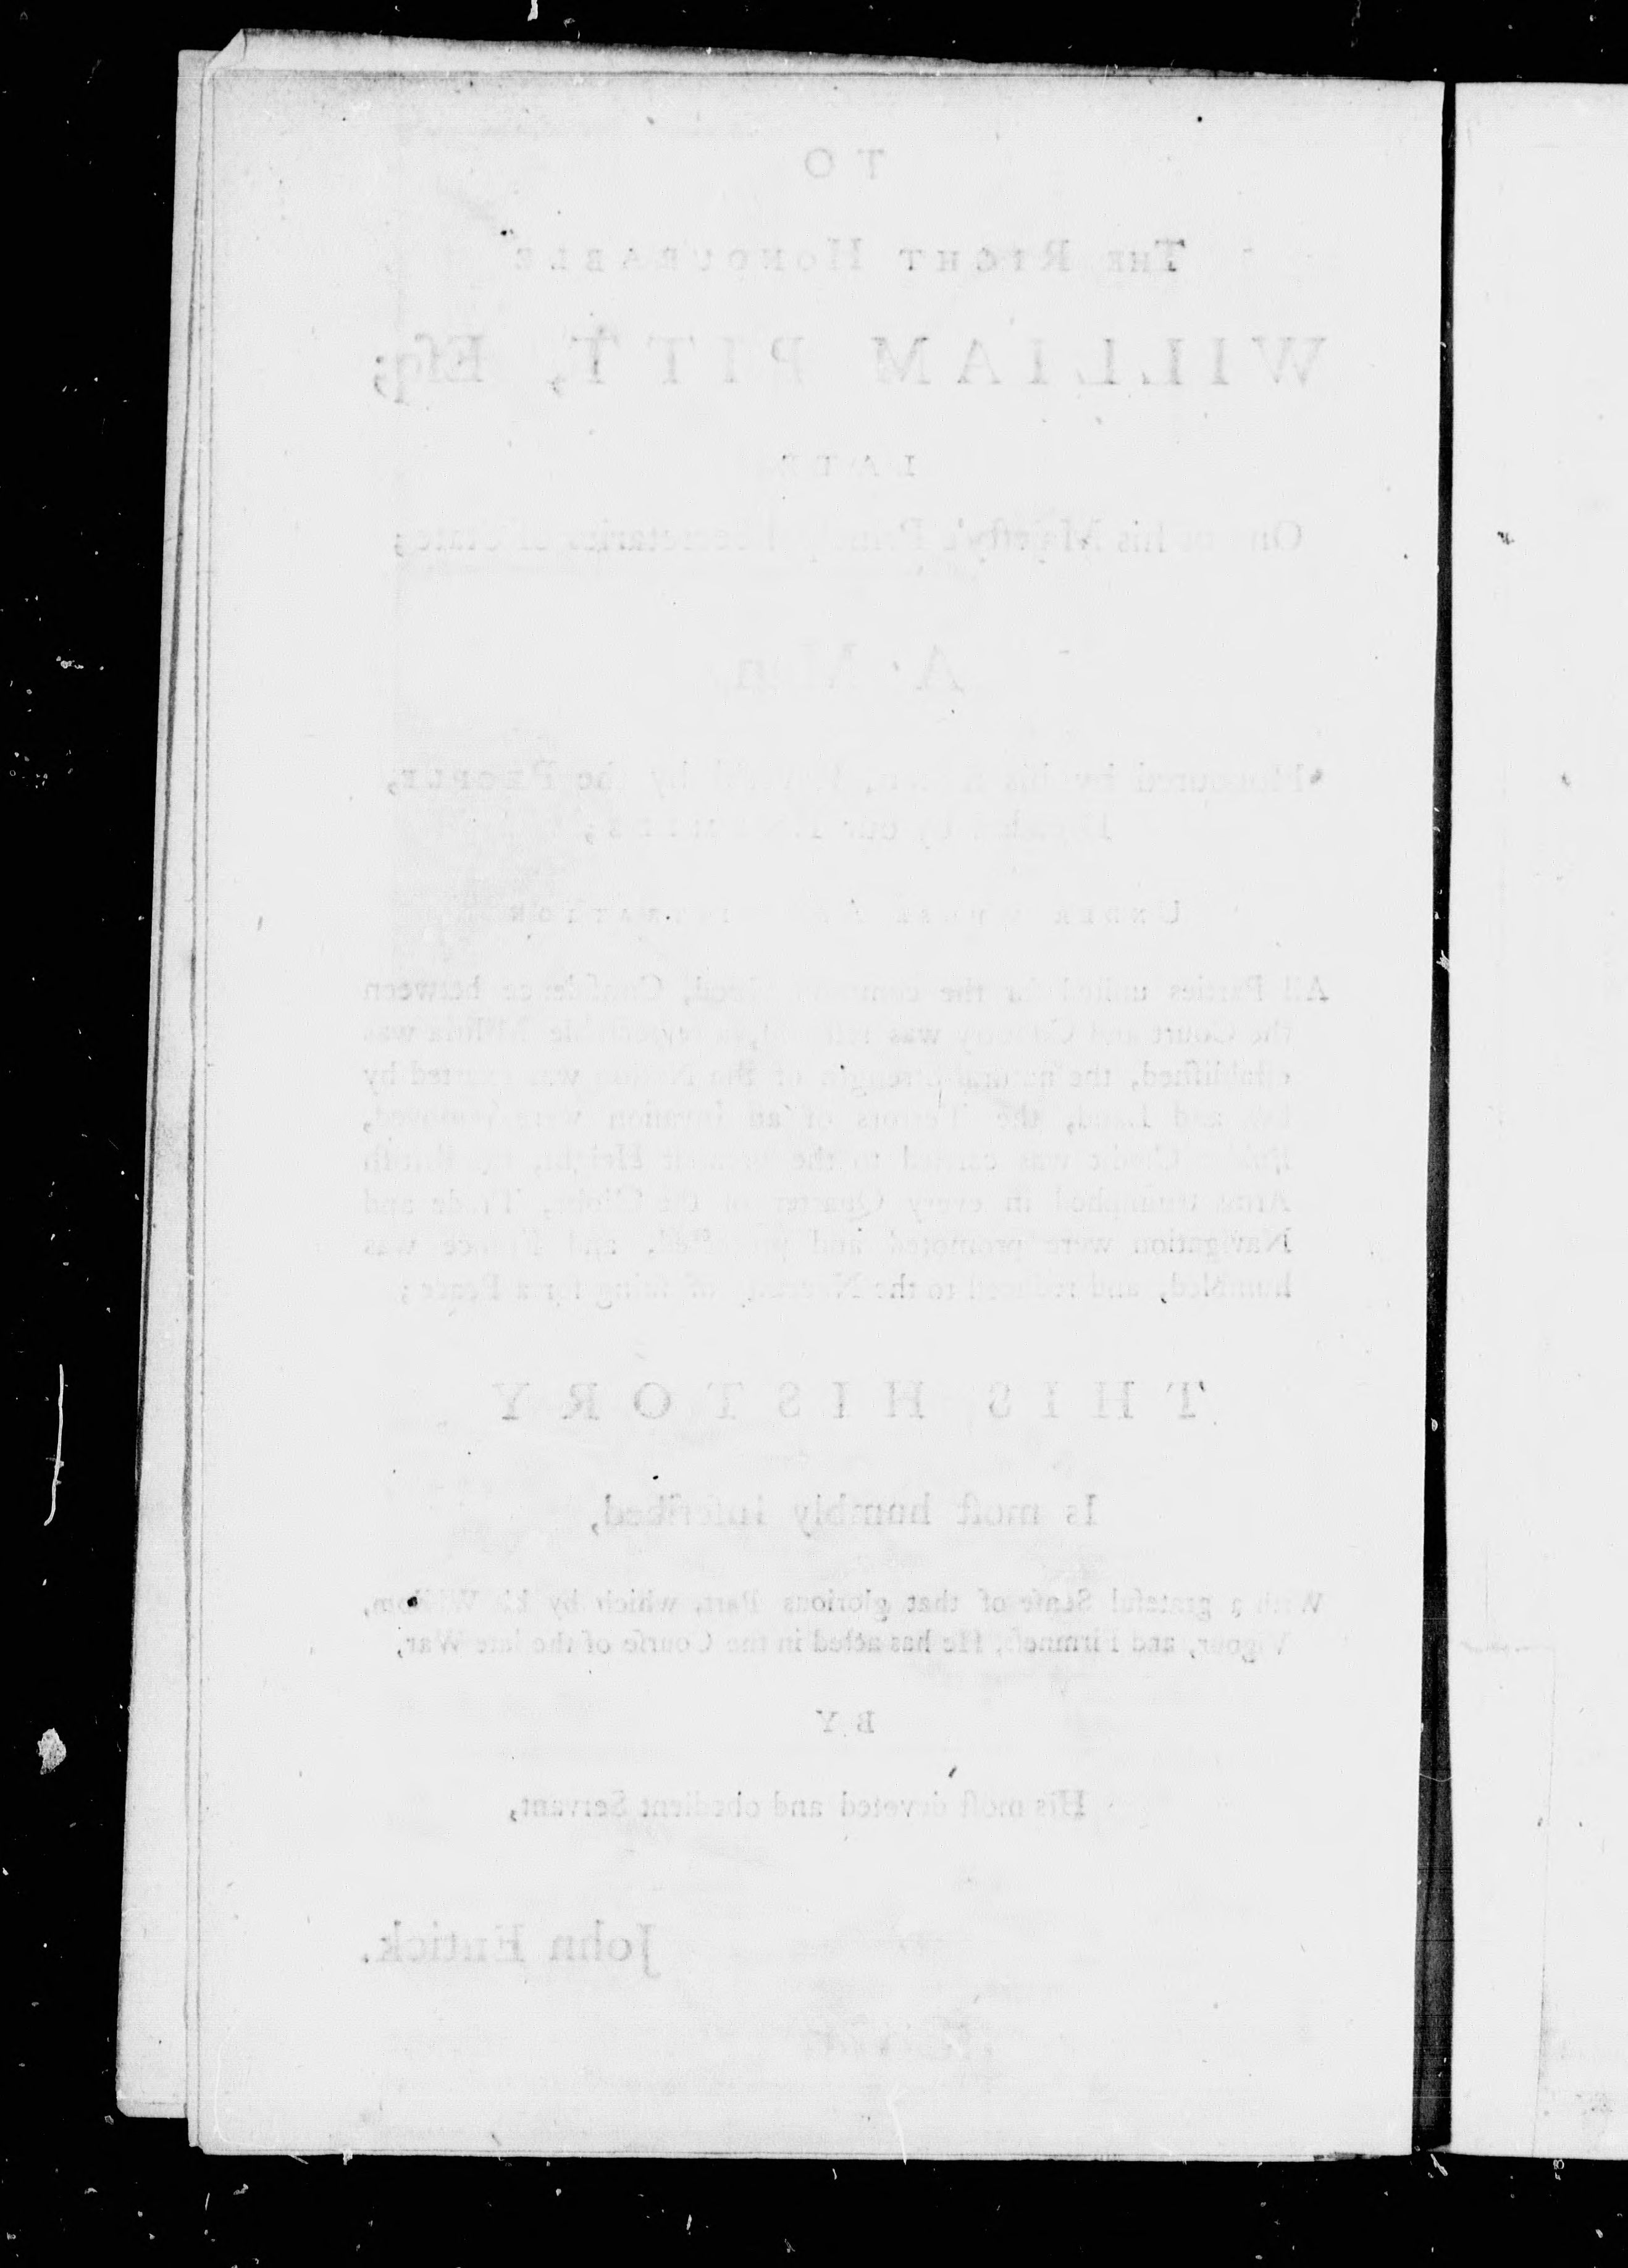 TO
THE RIGHT HONOURABLE
WILLIAM PITT, Eſq;
LATE
his Majeſty's Secretaries of State;
A Man
Honoured by his by the PEOPLE,
by our
UNDER WHOSE
All Parties united in the common Good, Confidence between
the Court and Country was a reſpectable Militia was
eſtabliſhed, the natural Strength of the Nation was exerted by
Sea and Land, the Terrors of an Invaſion were removed,
Credit was carried to the Height, the Britiſh
Arms triumphed in every Quarter of the Globe, Trade and
Navigation were promoted and protected, and France was
humbled, and reduced to the Neceſſity of ſuing for a Peace;
THIS HISTORY
Is moſt humbly inſcribed,
With a grateful Senſe of that glorious Part, which by his Wiſdom,
Vigour, and Firmneſs, He has acted in the Courſe of the late War,
BY
His moſt devoted and obedient Servant,
John Entick.